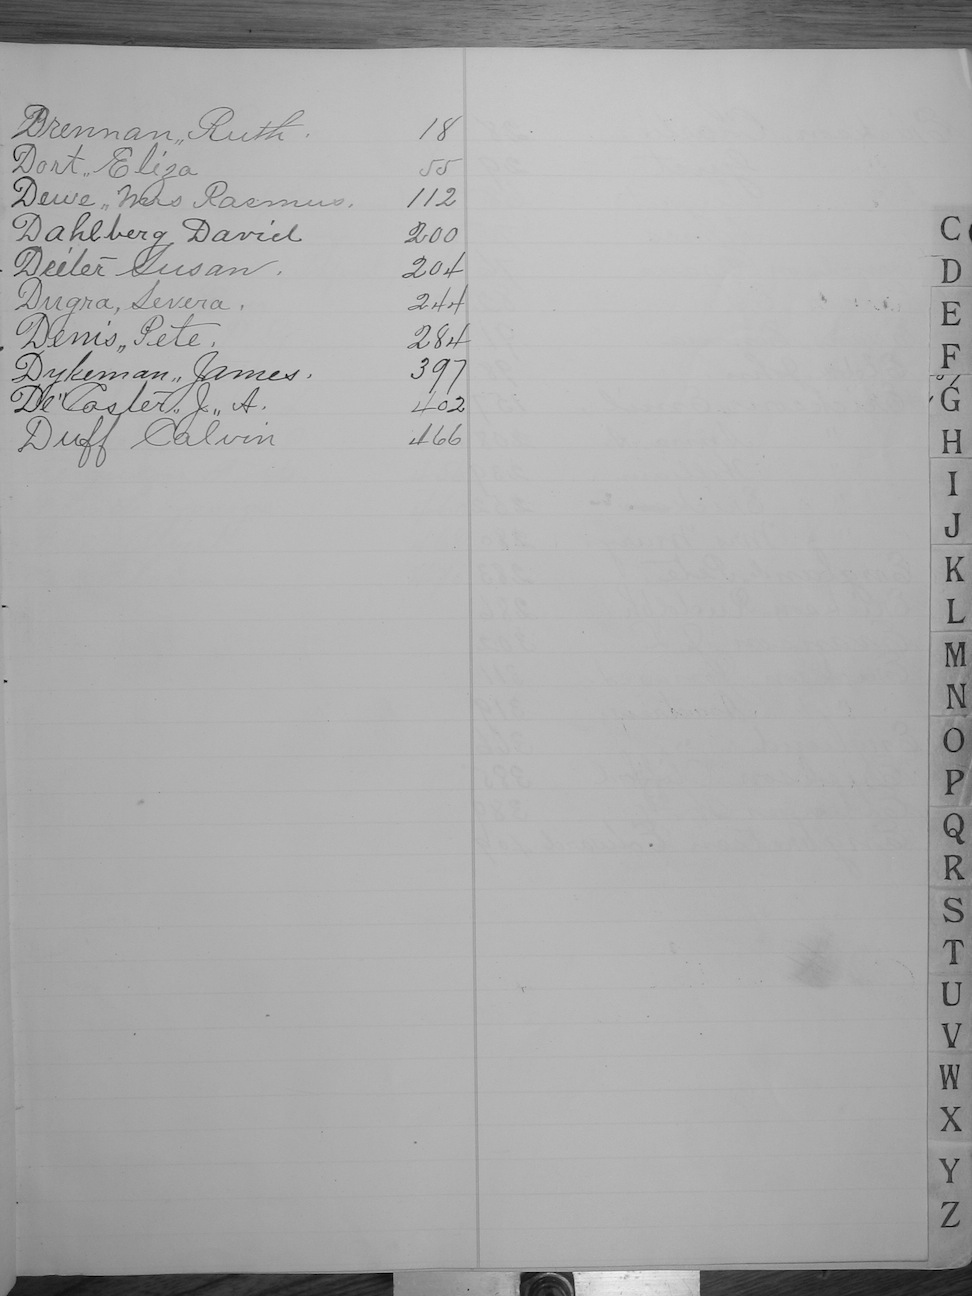 Brennan,, Ruth. 18
Dort,, Eliza 55
Dewe,, Mrs Rasmus. 112
Dahlberg David 200
Deiter Susan. 204
Dugra, Severa. 244
Denis,, Pete. 284
Dykeman,, James. 397
De"Coster,, J,, A. 402
Duff Calvin 466
C
D
E
F
G
H
I
J
K
L
M
N
O
P
Q
R
S
T
U
V
W
X
Y
Z